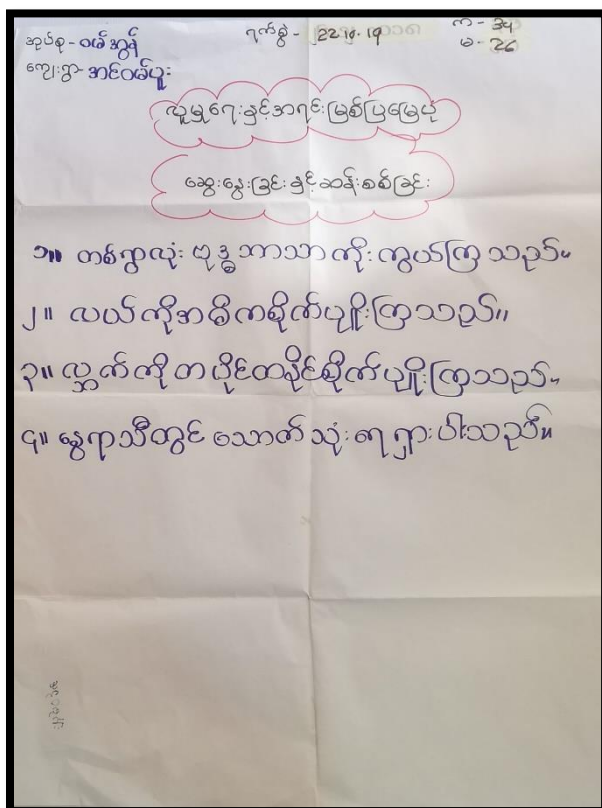 အုပ်စု - ဝမ်အွန် ရက်စွဲ - 22.10.19 က - 34
ကျေးရွာ - အင်ဝမ်ပူး မ - 26
လူမှုရေးနှင့်အရင်းမြစ်ပြမြေပုံ
ဆွေးနွေးခြင်းနှင့်ဆန်းစစ်ခြင်း
၁။ တစ်ရွာလုံး ဗုဒ္ဓဘာသာကိုးကွယ်ကြသည်။
၂။ လယ်ကိုအဓိကစိုက်ပျိုးကြသည်။
၃။ လ္ဘက်ကိုတပိုင်တနိုင်စိုက်ပျိုးကြသည်။
၄။ နွေရာသီတွင် သောက်သုံးရေရှားပါးသည်။